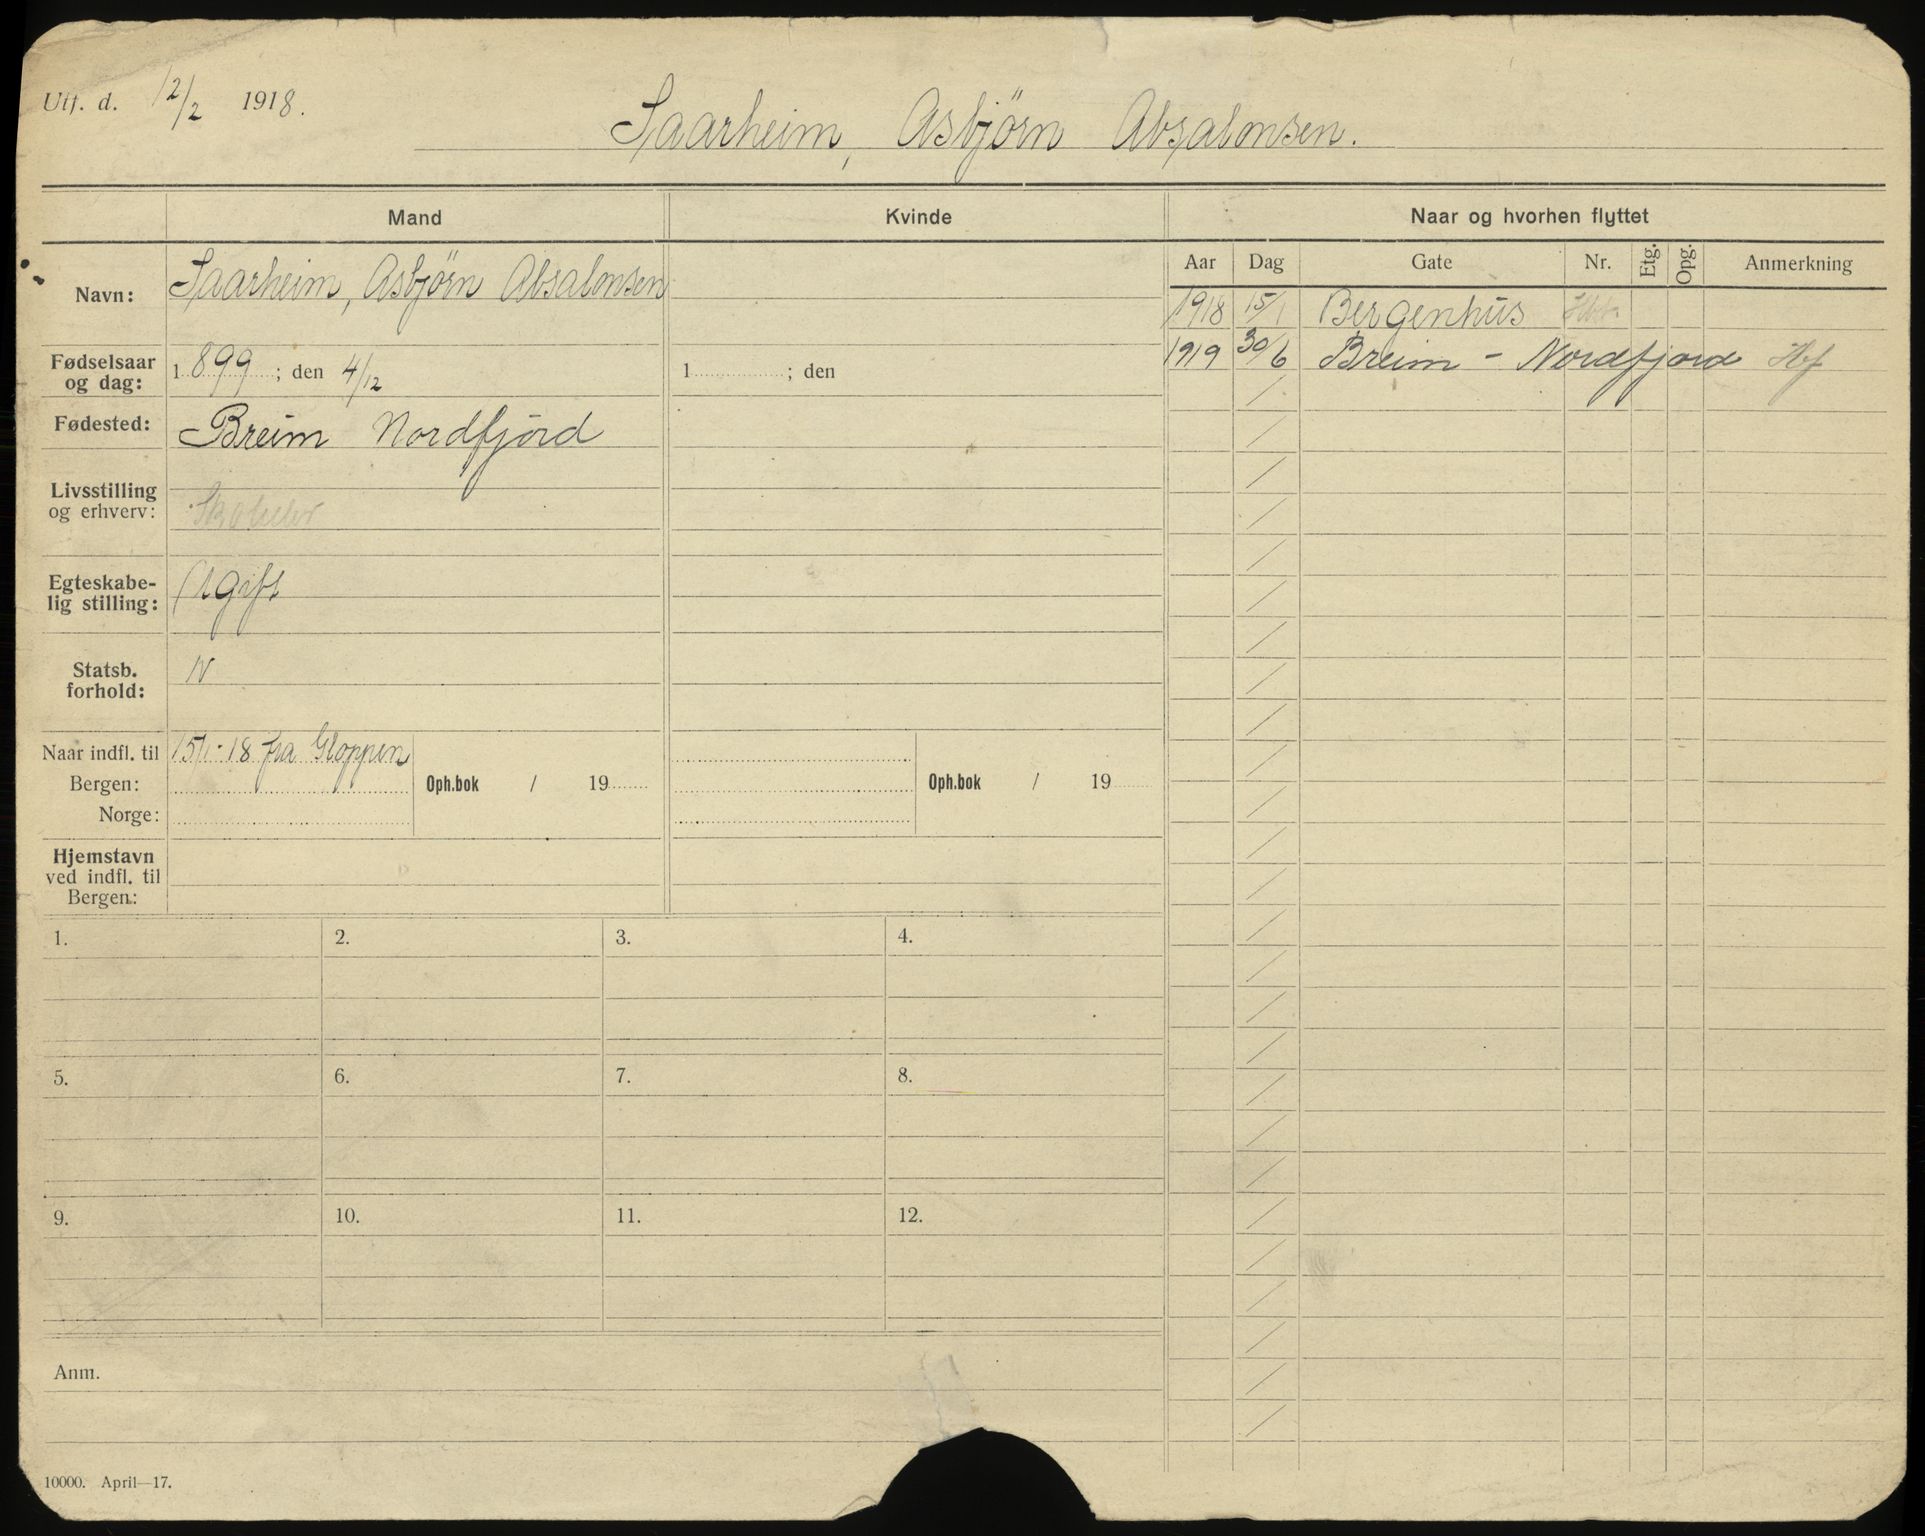 Utf. d. 12/2 1918.
Saarheim, Asbjørn Absalonsen.
Mand Kvinde Naar og hvorhen flyttet
Aar Dag Gate Nr. Etg. Opg. Anmerkning
Navn: Saarheim, Asbjørn Absalonsen
1918 15/1 Bergenhus
1919 30/6 Breim - Nordfjord
Fødselsaar og dag: 1899; den 4/12 1 ; den
Fødested: Breim Nordfjord
Livsstilling
og erhverv:
Egteskabe-
lig stilling: Ugift
Statsb.
forhold: N
Naar indfl. til 15/1-18 fra Gloppen
Bergen: Oph.bok / 19 Oph.bok / 19
Norge:
Hjemstavn
ved indfl. til
Bergen:
1. 2. 3. 4.
5. 6. 7. 8.
9. 10. 11. 12.
Anm.
10000. April—17.